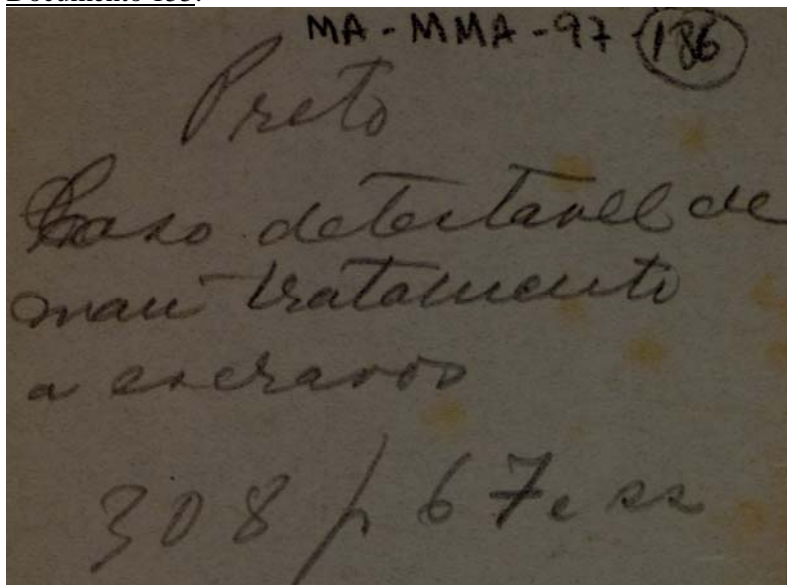 MA-MMA-97 (186)
Preto
Caso detestavel de
mau tratamento
a escravos
308 p 67 e ss